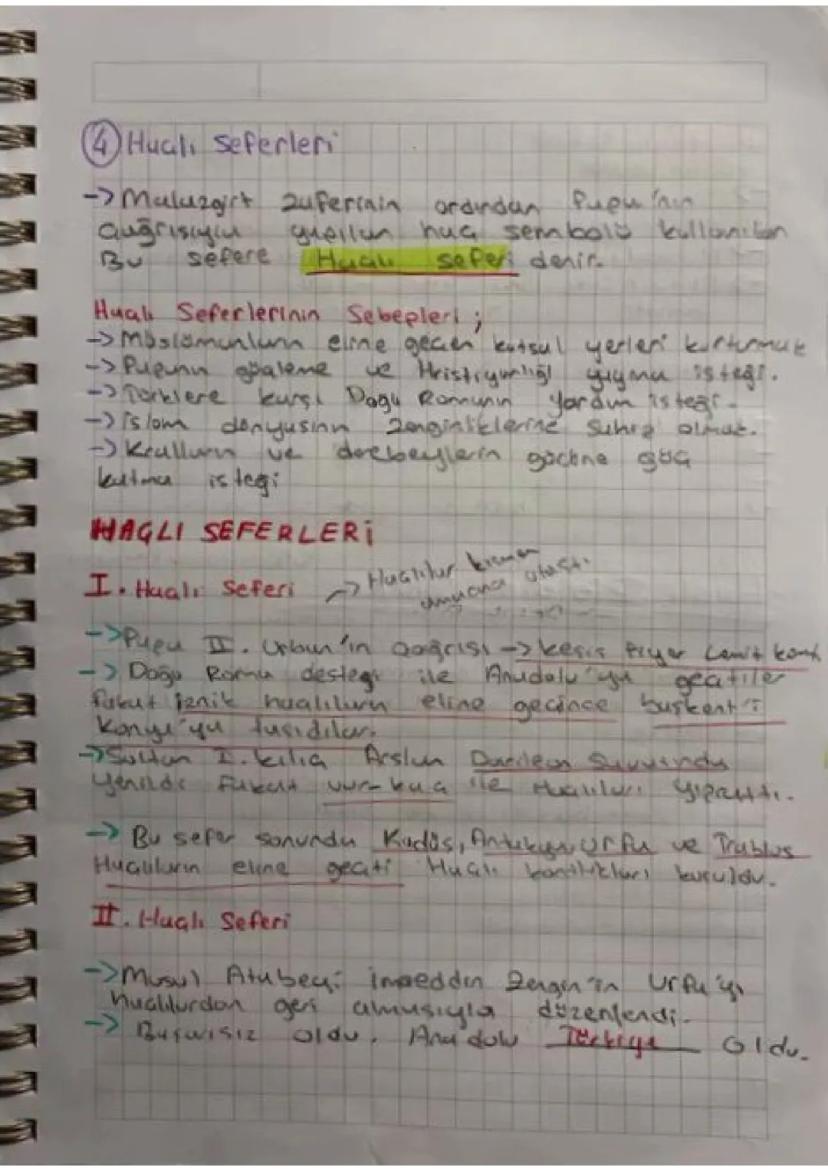 ④ Haçlı Seferleri
-> Malazgirt zaferinin ardından Papa'nın
çağrısıyla yapılan haç sembolü kullanılan
Bu sefere Haçlı seferi denir.
Haçlı Seferlerinin Sebepleri ;
-> Müslümanların eline geçen kutsal yerleri kurtarmak
-> Papanın güçlenme ve Hristiyanlığı yayma isteği.
-> Türklere karşı Doğu Romanın yardım isteği.
-> İslam dünyasının zenginliklerine sahip olmak.
-> Kralların ve derebeylerin gücüne güç
katma isteği
HAÇLI SEFERLERİ
I. Haçlı Seferi -> Haçlılar kısmen
amacına ulaştı.
-> Papa II. Urban'ın çağrısı -> keşiş Piyer
-> Doğu Roma desteği ile Anadolu'ya geçtiler
fakat iznik haçlıların eline geçince başkent'i
Konya'ya taşıdılar.
-> Sultan I. kılıç Arslan Savaşında
yenildi fakat vur-kaç ile Haçlıları yıprattı.
-> Bu sefer sonunda Kudüs, Antakya, Urfa ve Trablus
Haçlıların eline geçti Haçlı kontlukları kuruldu.
II. Haçlı Seferi
-> Musul Atabeyi imadeddin Zengin'in Urfa'yı
haçlılardan geri almasıyla düzenlendi.
-> Başarısız oldu. Anadolu Türkiye oldu.